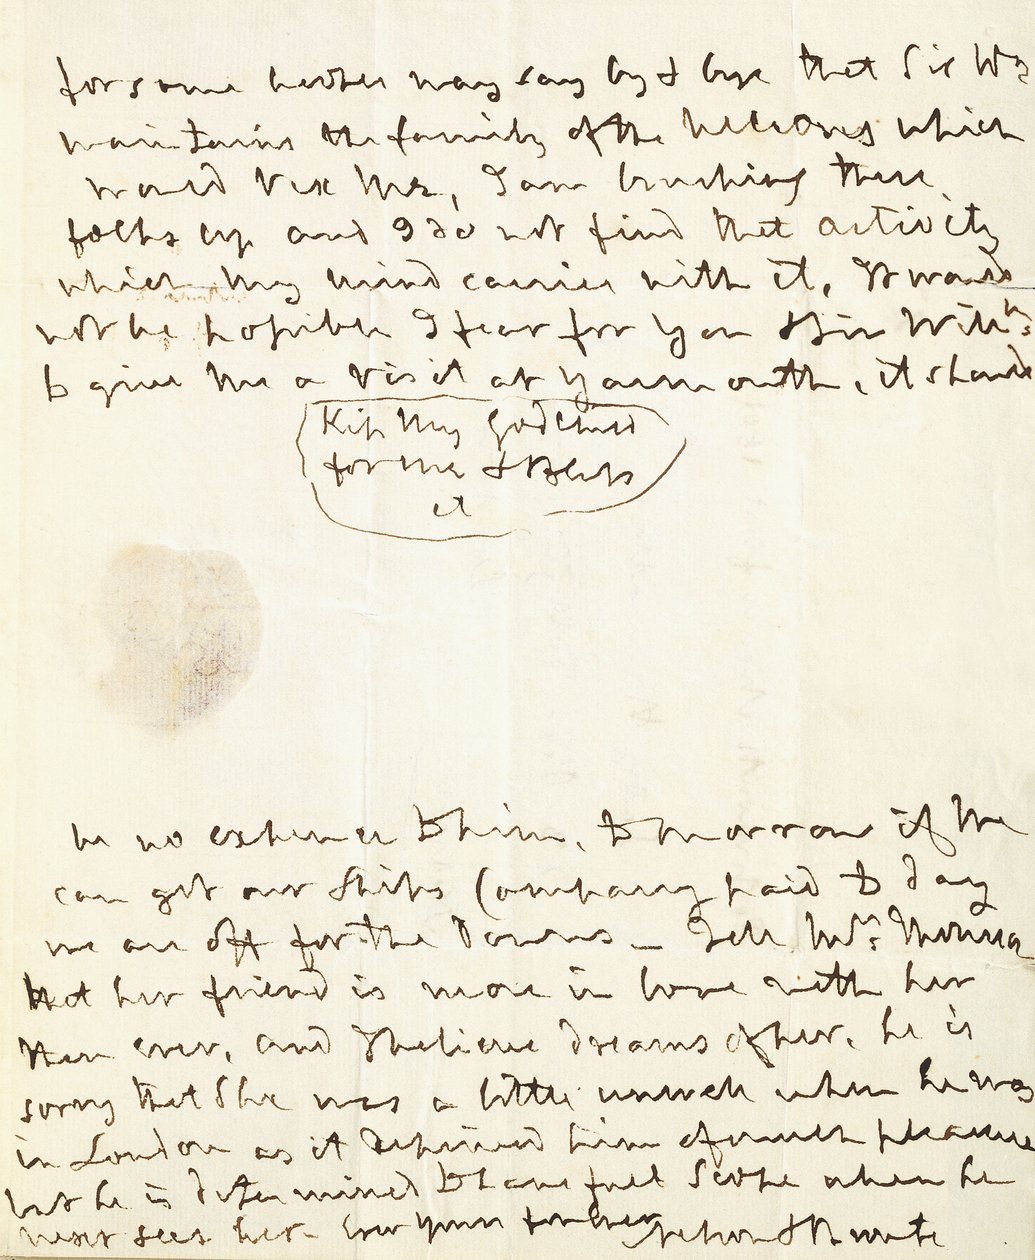 for some or other may say by & bye that Sir Wm
maintains the family of the Nelsons which
would vex me, I am brushing these
folks up and I do not find that activity
which my mind carries with it, It would
not be possible I fear for you & Sir Willm:
to give me a visit at Yarmouth, it should
Kiss my God Child
for me & Bless
it
be no expence to him, to morrow if we
can get our Ships Company paid to day
we are off for the Downs — Tell Mrs: Thomson
that her friend is more in love with her
then ever, and I believe dreams of her, he is
sorry that she was a little unwell when he was
in London as it deprived him of much pleasure
but he is determined to have full scope when he
next sees her. Ever yours for ever Nelson & Bronte